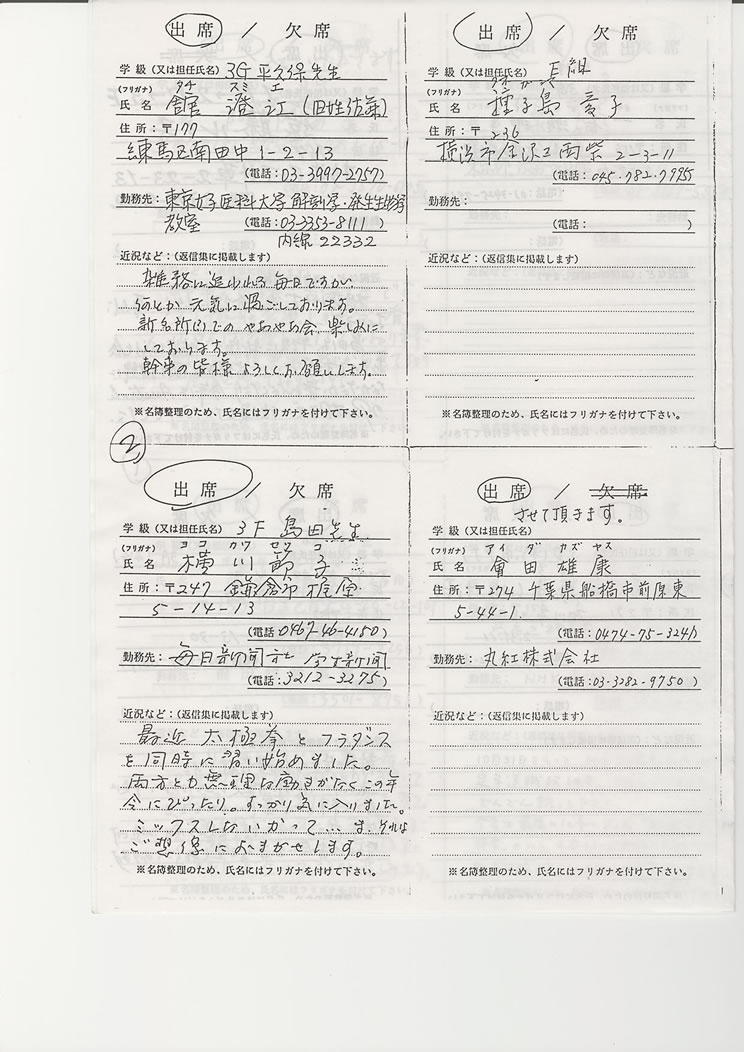 出席 / 欠席
学級（又は担任氏名） 3G 平久保先生
（フリガナ） タチ スミ エ
氏名 舘 澄江（旧姓佐藤）
住所：〒177
練馬区南田中1-2-13
（電話：03-3997-2757）
勤務先：東京女子医科大学 解剖学・発生生物学
教室 （電話：03-3353-8111）
内線 22332
近況など：（返信集に掲載します）
雑務に追われる毎日ですが、
何とか元気に過ごしております。
新名所(?)での やあやあ会、楽しみに
しております。
幹事の皆様 よろしくお願いします。
※名簿整理のため、氏名にはフリガナを付けて下さい。
出席 / 欠席
学級（又は担任氏名） F組
（フリガナ） タネ が しま
氏名 種子島
住所：〒236
横浜市金沢区西柴 2-3-11
（電話：045-782-7995
勤務先：
（電話： ）
近況など：（返信集に掲載します）
※名簿整理のため、氏名にはフリガナを付けて下さい。
②
出席 / 欠席
学級（又は担任氏名） 3F 島田先生
（フリガナ） ヨコ カワ セツ コ
氏名 横川節子
住所：〒247 鎌倉市植木
5-14-13
（電話：0467-46-4150）
勤務先：毎日新聞社 学生新聞
（電話：3212-3275）
近況など：（返信集に掲載します）
最近 太極拳とフラダンス
を同時に習い始めました。
両方とも無理な動きがなくこの年
令にぴったり。すっかり気に入りました。
ミックスしないかって… ま、それは
ご想像におまかせします。
※名簿整理のため、氏名にはフリガナを付けて下さい。
出席 / 欠席
させて頂きます。
学級（又は担任氏名）
（フリガナ） アイ ダ カズ ヤス
氏名 會田雄康
住所：〒274 千葉県船橋市前原東
5-44-1
（電話：0474-75-3241）
勤務先：丸紅株式会社
（電話：03-3282-9750）
近況など：（返信集に掲載します）
※名簿整理のため、氏名にはフリガナを付けて下さい。